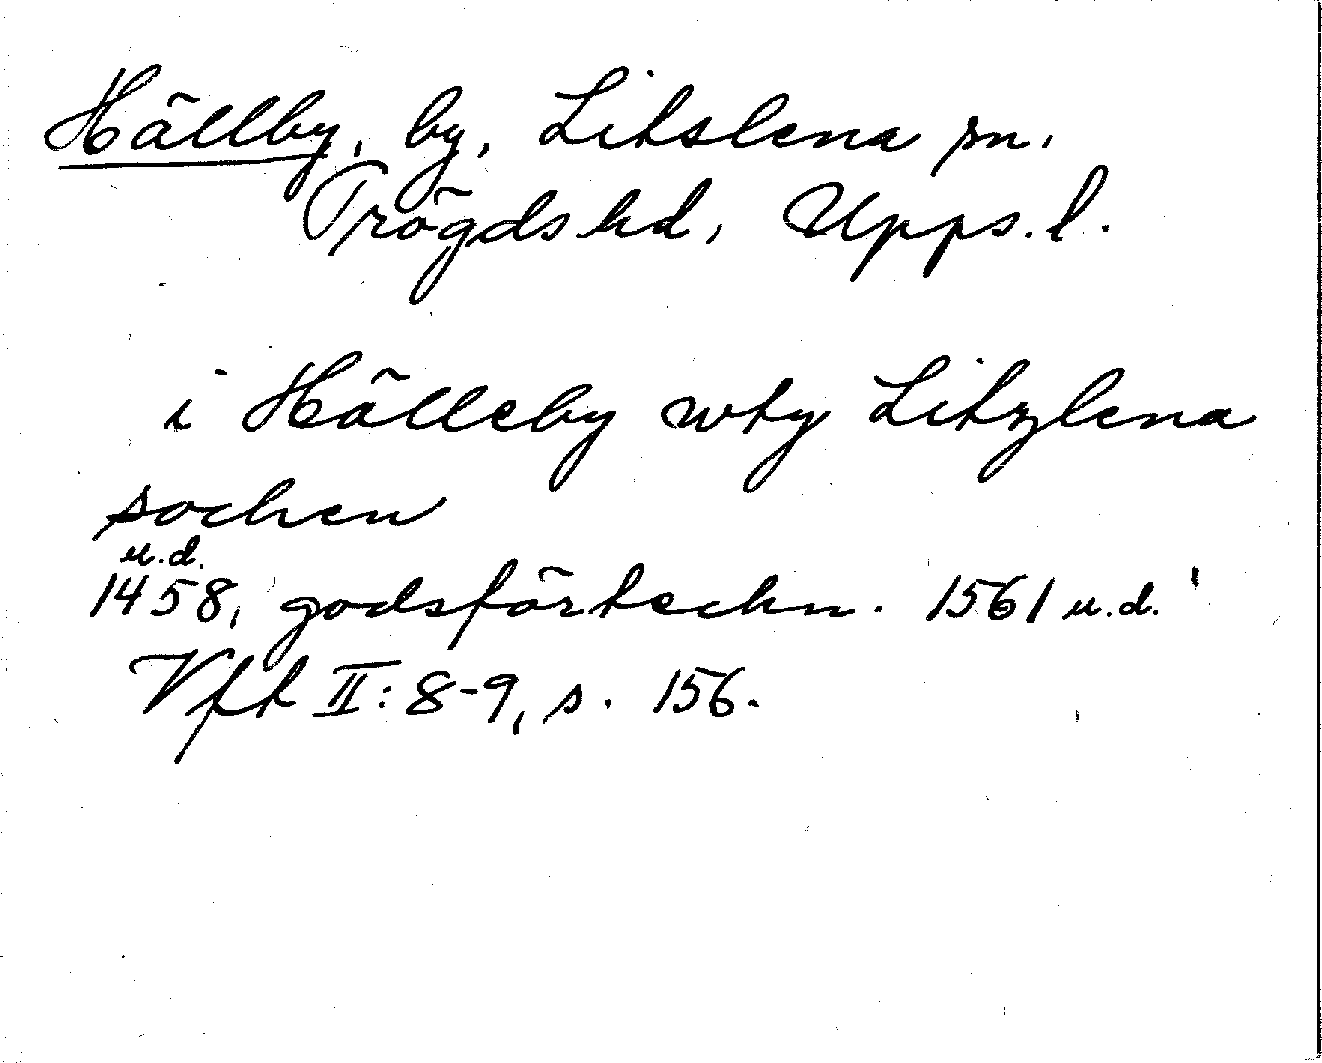 Hällby, by, Litslena sn.
Trögds hd, Upps. l.
i Hälleby wty Litzlena
sochen
u.d.
1458, godsförteckn. 1561 u.d.
Vft II: 8-9, s. 156.